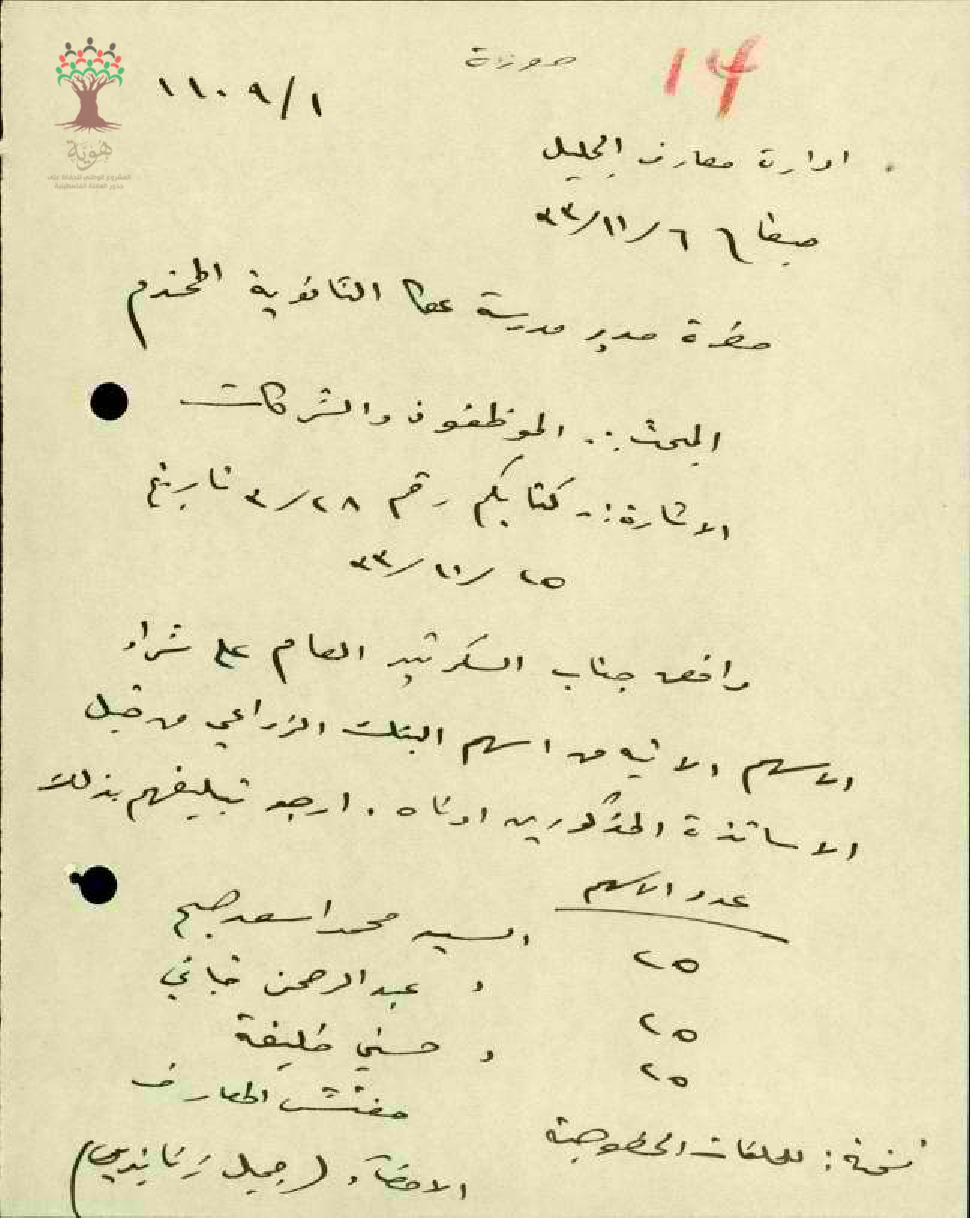 صورة
١٤
١١٠٩/١
هوية
المشروع الوطني للحفاظ على
جذور العائلة الفلسطينية
ادارة معارف الجليل
صفد في ٦/١١/٣٣
حضرة مدير مدرسة عكا الثانوية المحترم
البحث:. الموظفون والشركات
الاشارة:- كتابكم رقم ٣/٢٨ تاريخ
٢٥/١١/٣٣
وافق جناب السكرتير العام على شراء
الاسهم الاتية من اسهم البنك الزراعي من قبل
الاساتذة المذكورين ادناه. ارجو تبليغهم بذلك
عدد الاسهم
٢٥ السيد محمد اسعد صبح
٢٥ " عبد الرحمن
٢٥ " حسني خليفة
مفتش المعارف
نسخة: للملفات الخصوصية
الامضاء (جميل